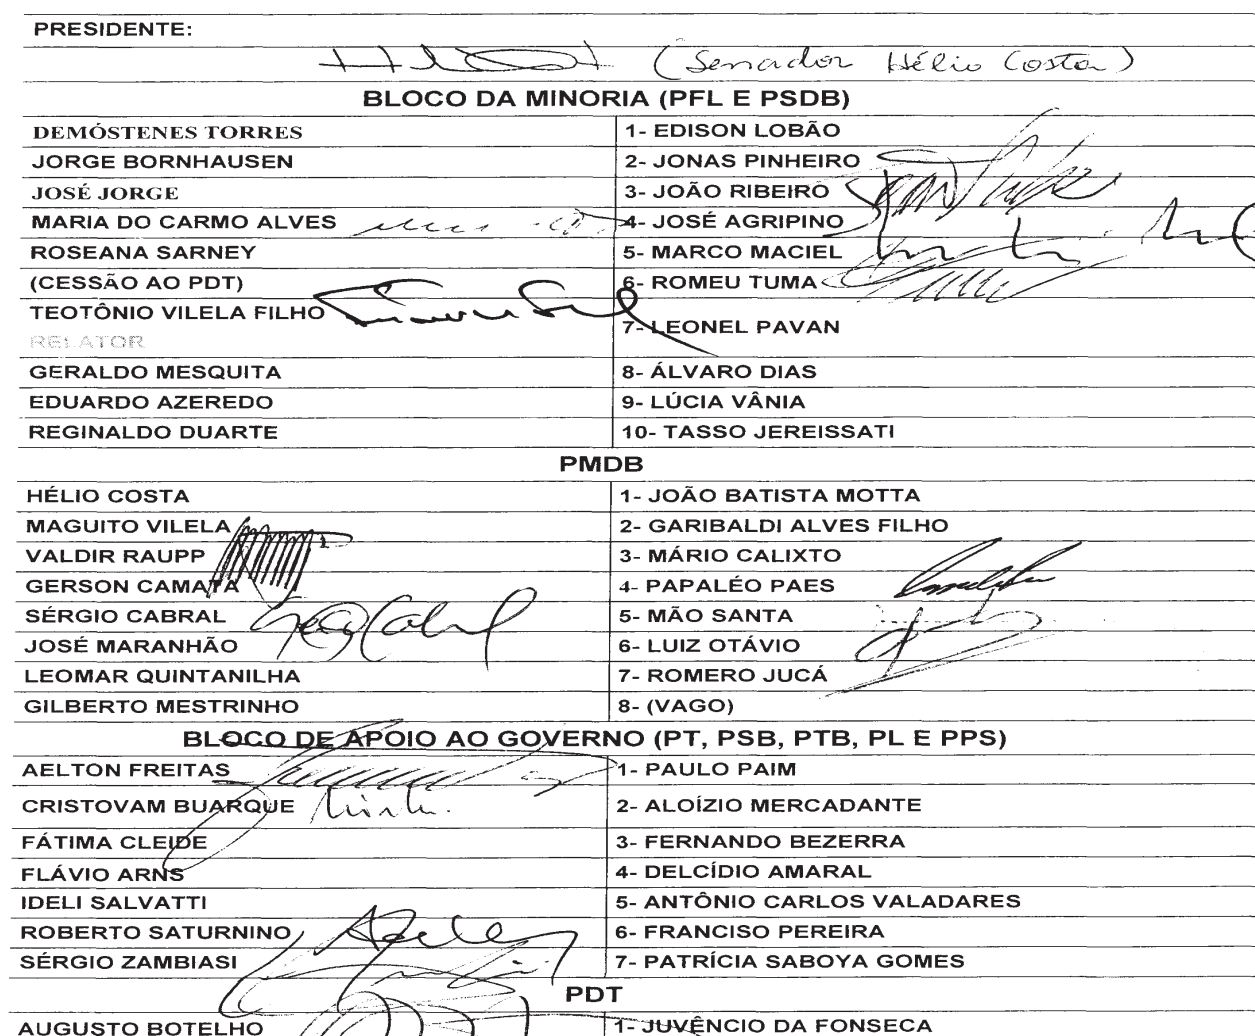 PRESIDENTE:
(Senador Hélio Costa)
BLOCO DA MINORIA (PFL E PSDB)
DEMÓSTENES TORRES 1- EDISON LOBÃO
JORGE BORNHAUSEN 2- JONAS PINHEIRO
JOSÉ JORGE 3- JOÃO RIBEIRO
MARIA DO CARMO ALVES 4- JOSÉ AGRIPINO
ROSEANA SARNEY 5- MARCO MACIEL
(CESSÃO AO PDT) 6- ROMEU TUMA
TEOTÔNIO VILELA FILHO 7- LEONEL PAVAN
RELATOR
GERALDO MESQUITA 8- ÁLVARO DIAS
EDUARDO AZEREDO 9- LÚCIA VÂNIA
REGINALDO DUARTE 10- TASSO JEREISSATI
PMDB
HÉLIO COSTA 1- JOÃO BATISTA MOTTA
MAGUITO VILELA 2- GARIBALDI ALVES FILHO
VALDIR RAUPP 3- MÁRIO CALIXTO
GERSON CAMATA 4- PAPALÉO PAES
SÉRGIO CABRAL 5- MÃO SANTA
JOSÉ MARANHÃO 6- LUIZ OTÁVIO
LEOMAR QUINTANILHA 7- ROMERO JUCÁ
GILBERTO MESTRINHO 8- (VAGO)
BLOCO DE APOIO AO GOVERNO (PT, PSB, PTB, PL E PPS)
AELTON FREITAS 1- PAULO PAIM
CRISTOVAM BUARQUE 2- ALOÍZIO MERCADANTE
FÁTIMA CLEIDE 3- FERNANDO BEZERRA
FLÁVIO ARNS 4- DELCÍDIO AMARAL
IDELI SALVATTI 5- ANTÔNIO CARLOS VALADARES
ROBERTO SATURNINO 6- FRANCISO PEREIRA
SÉRGIO ZAMBIASI 7- PATRÍCIA SABOYA GOMES
PDT
AUGUSTO BOTELHO 1- JUVÊNCIO DA FONSECA